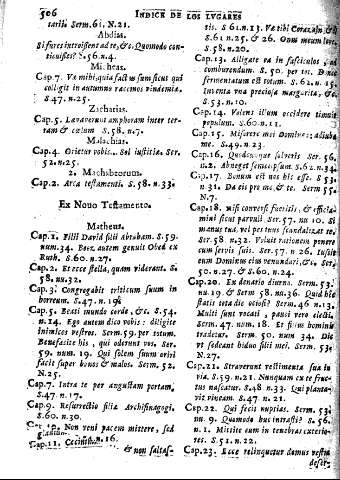 506 INDICE DE LOS LVGARES
taris. Serm.61. N.21.
Abdias.
Si fures introissent ad te, &c. Quomodo con-
ticuisses? S.56.n.4.
Micheas.
Cap.7. Væ mihi, quia factus sum sicut qui
colligit in autumno racemos vindemia.
S.47. n.25.
Zacharias.
Cap.5. Levaverunt amphoram inter ter-
ram & cœlum S.58. n.7.
Malachias.
Cap.4. Orietur vobis.. Sol iustitia. Ser.
52. n.25.
2. Machabæorum.
Cap.2. Arca testamenti. S.58. n.33.
Ex Nouo Testamento.
Matheus.
Cap.1. Filii David filii abraham. S.59.
num.34. Booz autem genuit Obed ex
Ruth. S.60. n.27.
Cap.2. Et ecce stella, quam viderant. S.
58. nu.32.
Cap.3. Congregabit triticum suum in
horreum. S.47. n.19.
Cap.5. Beati mundo corde, &c. S.54.
n.14. Ego autem dico vobis: diligite
inimicos vestros. Serm.59. per totum.
Benefacite his, qui oderunt vos. Ser.
59. num.19. Qui solem suum oriri
facit super bonos & malos. Serm.52.
N.25.
Cap.7. Intra te per angustam portam,
S.47. n.17.
Cap.9. Resurrectio filiæ Archisinagogi.
S.60. n.30.
Cap.10. Non veni pacem mittere, sed
gladium. n.16.
Cap.11. Cecinimus & non saltas-
tis. S.61. n.13. Væ tibi Corazain, &
S.61. n.25. & 26. Onus meum leve.
S.58. n.20.
Cap.13. Alligate ea in fasciculos ad
comburendum. S.50. per tot. Donec
fermentatum est totum. S.62. n.15.
Inventa una preciosa margarita, &c.
S.53. n.10.
Cap.14. Volens illum occidere timuit
populum. S.60. n.11.
Cap.15. Miserere mei Domine; adiuba
me. S.49. n.23.
Cap.16. Quodcunque solveris Ser.56.
n.2. Abneget semetipsum. S.62. n.34.
Cap.17. Bonum est nos hic esse. S.53.
n.31. Da eis pro me, & te. Serm 55.
N.7.
Cap.18. Nisi conversi fueritis, & efficia-
mini sicut parvuli. Ser.57. nu 10. Si
manus tua, vel pes tuus scandalizat te.
Ser.58 num.32. Voluit rationem ponere
cum servis suis. Ser.57 n.26. Iussit
eum Dominus eius venundari, &c. Ser.
50. n.27. & S.60. n.24.
Cap.20. Ex denario diurno. Serm.53.
nu.19. & Serm 58. nu.36. Quid hic
statis tota die otiosi? Serm.46. n.13.
Multi sunt vocati, pauci vero electi.
Serm.47. num.18. Et filius hominis
tradetur. Serm. 50. num 34. Dic
ut sedeant hi duo filii mei. Serm.53.
N.27.
Cap.21. Straverunt vestimenta sua in
via. S.59. n.21. Nunquam ex te fruc-
tus nascatur. S.48. n.33. Qui planta-
vit vineam. S.47. n.21.
Cap.22. Qui fecit nuptias. Serm.53.
nu.9. Quomodo huc intrasti? S.56.
n.1. Mittite eum in tenebras exterio-
res. S.51. n.22.
Cap.23. Ecce relinquetur domus vestra
deser-